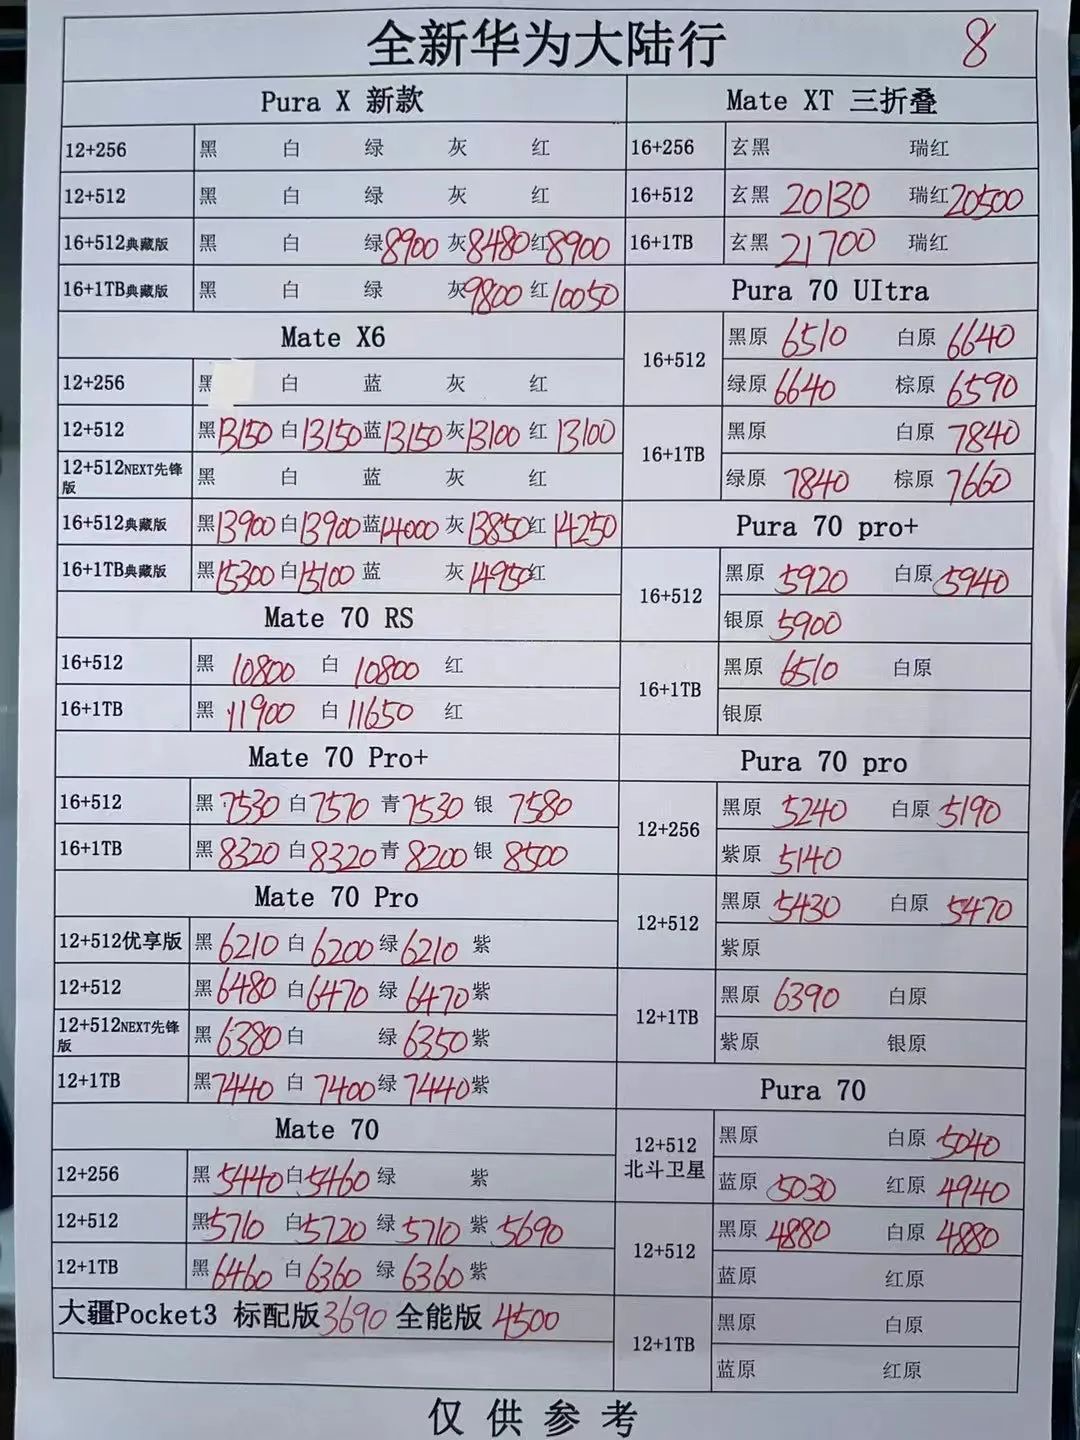 全新华为大陆行 8
Pura X 新款
12+256 黑 白 绿 灰 红
12+512 黑 白 绿 灰 红
16+512典藏版 黑 白 绿8900 灰8480 红8900
16+1TB典藏版 黑 白 绿 灰9800 红10050
Mate X6
12+256 黑 白 蓝 灰 红
12+512 黑13150 白13150 蓝13150 灰13100 红13100
12+512NEXT先锋版 黑 白 蓝 灰 红
16+512典藏版 黑13900 白13900 蓝14000 灰13850 红14250
16+1TB典藏版 黑15300 白15100 蓝 灰14950 红
Mate 70 RS
16+512 黑 10800 白 10800 红
16+1TB 黑 11900 白 11650 红
Mate 70 Pro+
16+512 黑 7530 白 7570 青 7530 银 7580
16+1TB 黑 8320 白 8320 青 8200 银 8500
Mate 70 Pro
12+512优享版 黑 6210 白 6200 绿 6210 紫
12+512 黑 6480 白 6470 绿 6470 紫
12+512NEXT先锋版 黑 6380 白 绿 6350 紫
12+1TB 黑 7440 白 7400 绿 7440 紫
Mate 70
12+256 黑 5440 白 5460 绿 紫
12+512 黑 5710 白 5720 绿 5710 紫 5690
12+1TB 黑 6460 白 6360 绿 6360 紫
大疆Pocket3 标配版 3690 全能版 4500
Mate XT 三折叠
16+256 玄黑 瑞红
16+512 玄黑 20130 瑞红 20500
16+1TB 玄黑 21700 瑞红
Pura 70 UItra
16+512 黑原 6510 白原 6640
绿原 6640 棕原 6590
16+1TB 黑原 白原 7840
绿原 7840 棕原 7660
Pura 70 pro+
16+512 黑原 5920 白原 5940
银原 5900
16+1TB 黑原 6510 白原
银原
Pura 70 pro
12+256 黑原 5240 白原 5190
紫原 5140
12+512 黑原 5430 白原 5470
紫原
12+1TB 黑原 6390 白原
紫原 银原
Pura 70
12+512 北斗卫星 黑原 白原 5040
蓝原 5030 红原 4940
12+512 黑原 4880 白原 4880
蓝原 红原
12+1TB 黑原 白原
蓝原 红原
仅供参考